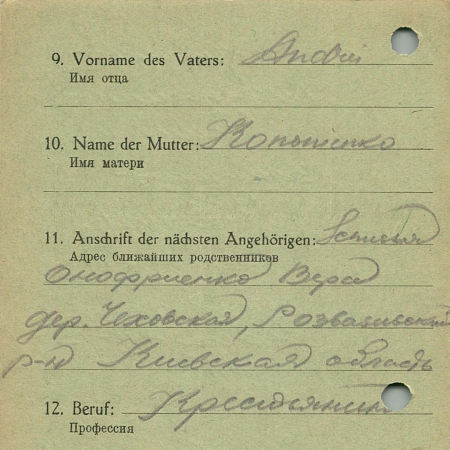 9. Vorname des Vaters: Andrei
Имя отца
10. Name der Mutter: Копытенко
Имя матери
11. Anschrift der nächsten Angehörigen:
Адрес ближайших родственников
Онофриенко Вера
дер. Чеховская, Розважевский
р-н Киевская область
12. Beruf: Крестьянин
Профессия